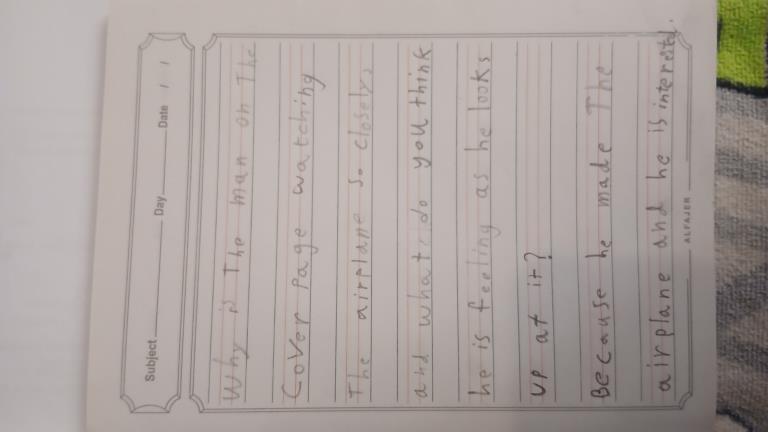 Subject Day Date / /
Why is The man on The
Cover Page watching
The airplane so closely,
and what do you think
he is feeling as he looks
up at it?
Because he made The
airplane and he is interestd.
ALFAJER